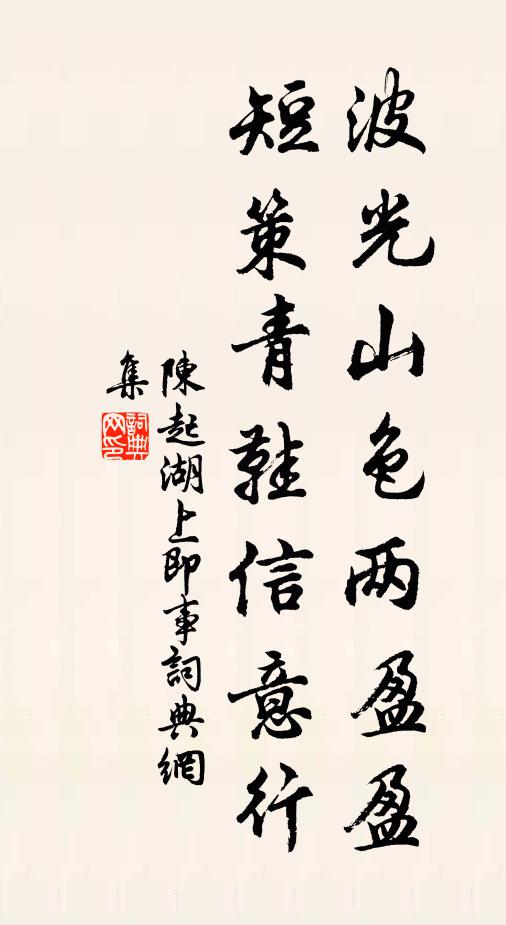 波光山色两盈盈
短策青鞋信意行
陳起湖上即事詞典網
集
詞典網印